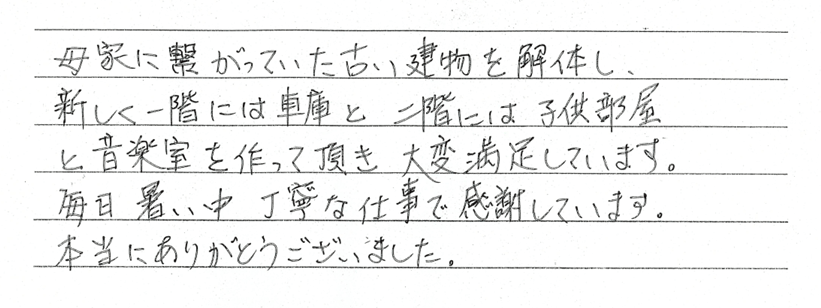 母家に繋がっていた古い建物を解体し、
新しく一階には車庫と二階には子供部屋
と音楽室を作って頂き大変満足しています。
毎日暑い中丁寧な仕事で感謝しています。
本当にありがとうございました。